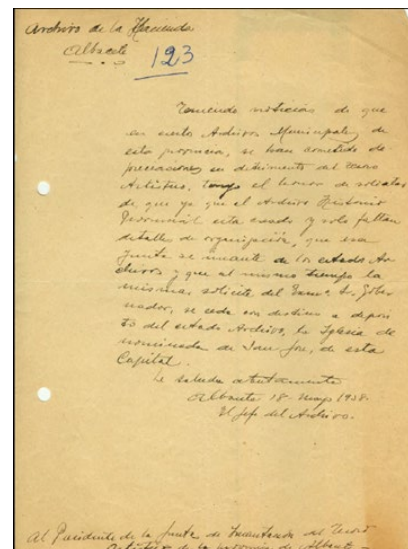 Archivo de la Hacienda
Albacete
123
Teniendo noticias de que
en ciertos Archivos Municipales de
esta provincia, se han cometido de
precaciones en detrimento del Tesoro
Artístico, tengo el honor de solicitar
de que ya que el Archivo Histórico
Provincial esta creado y solo faltan
detalles de organización, que esa
Junta se incaute de los citados Ar
chivos y que al mismo tiempo la
misma, solicite del Exmo. Sr. Gober
nador, se ceda con destino a deposi
to del citado Archivo, la Iglesia de
nominada de San José, de esta
Capital.
Le saluda atentamente
Albacete 18 Mayo 1938.
El Jefe del Archivo.
Al Presidente de la Junta de Incautación del Tesoro
Artístico de la provincia de Albacete